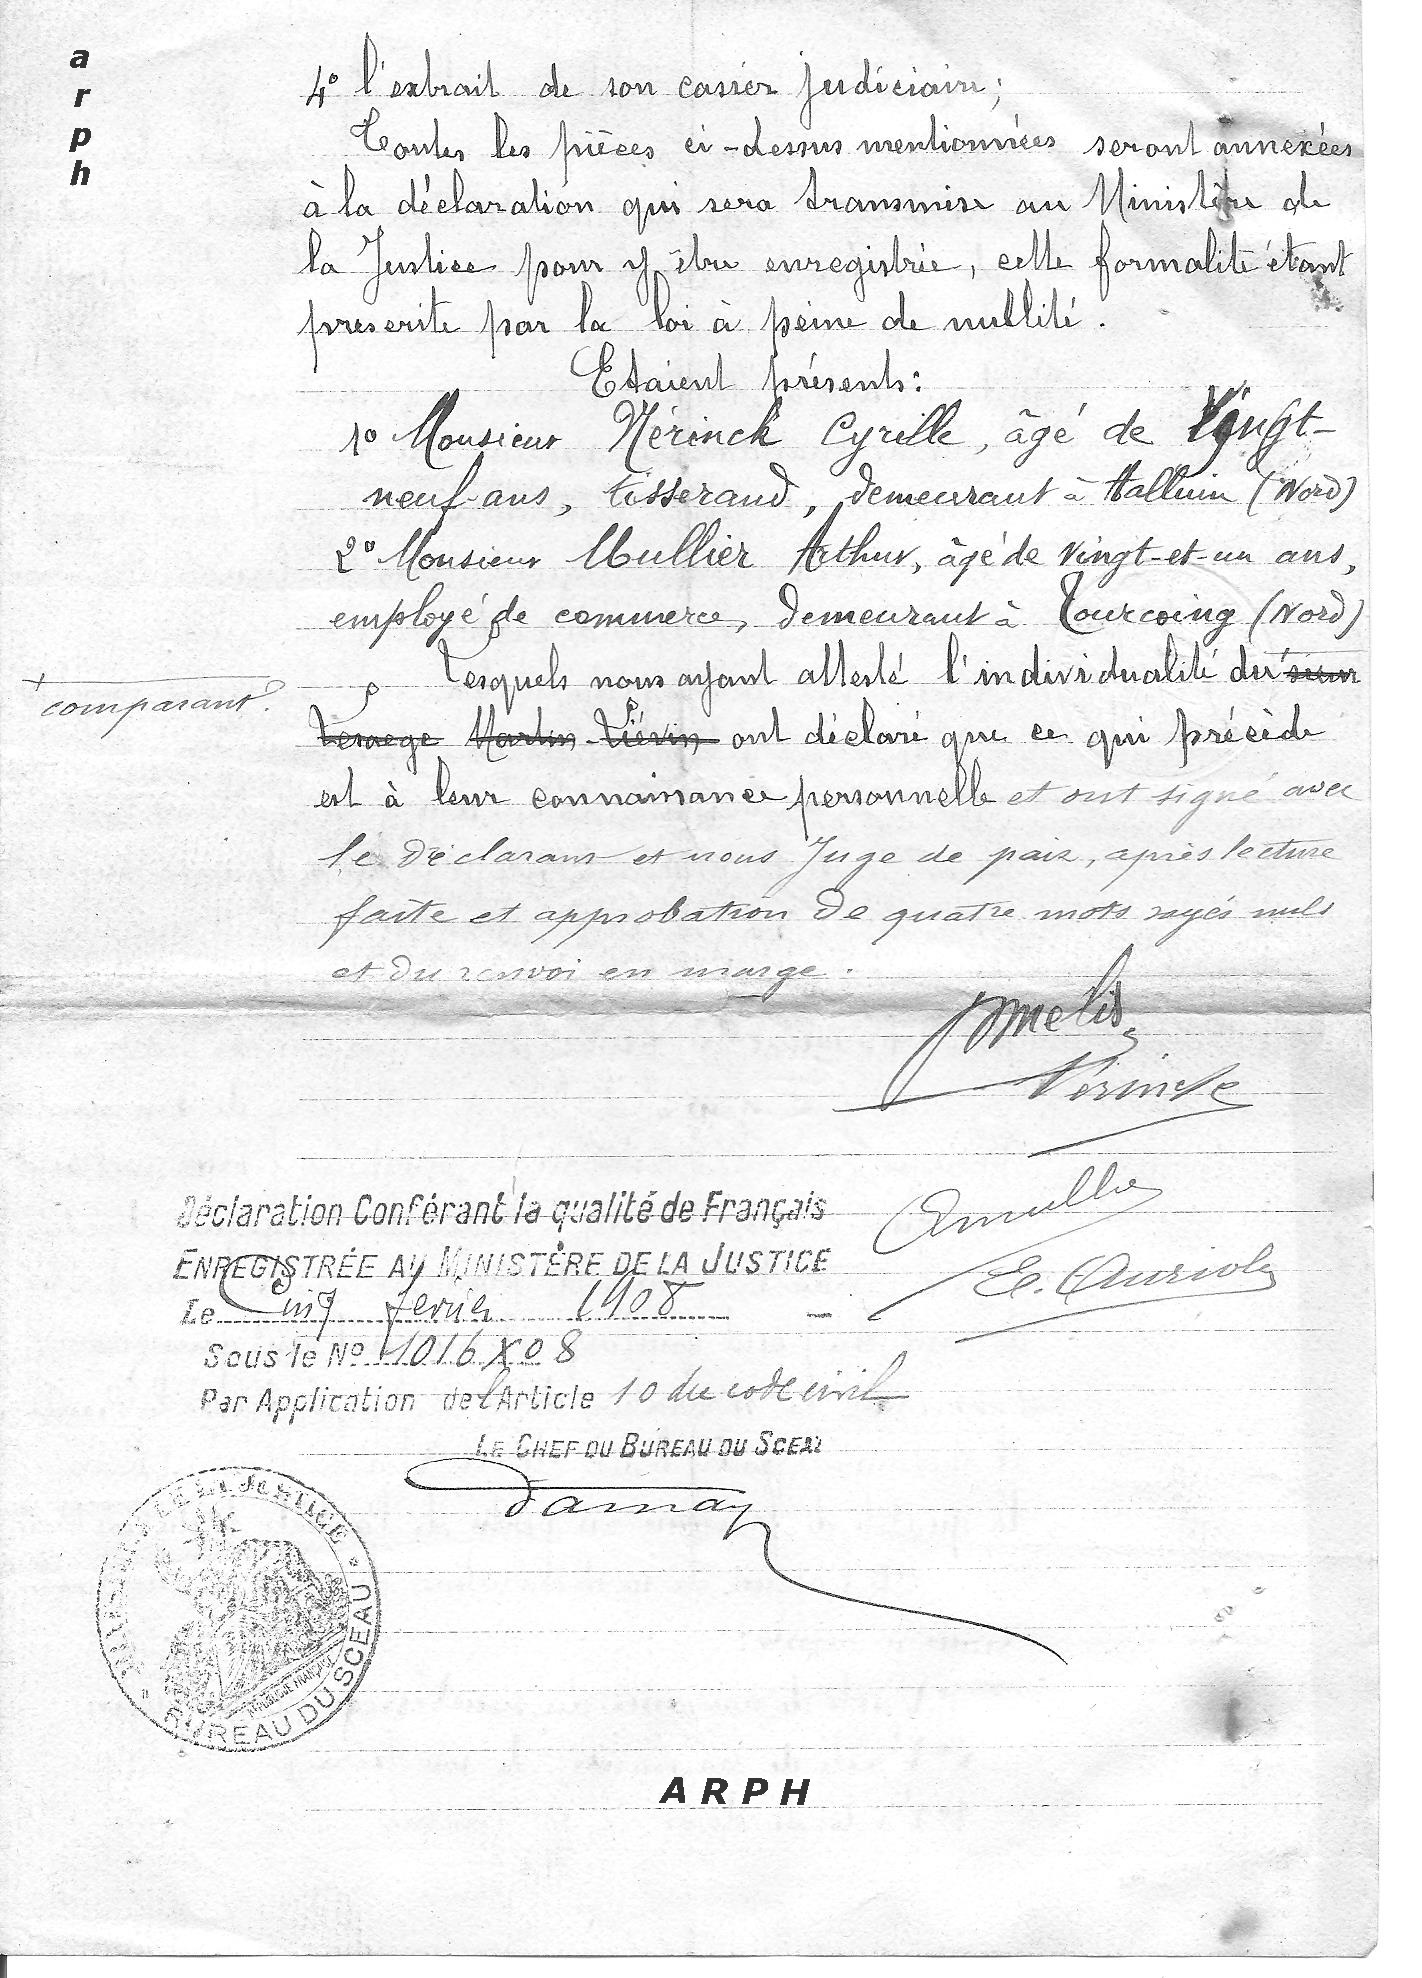 a
r
p
h
4° l'extrait de son casier judiciaire;
Toutes les pièces ci-dessus mentionnées seront annexées
à la déclaration qui sera transmise au Ministère de
la Justice pour y être enregistrée, cette formalité étant
prescrite par la loi à peine de nullité.
Etaient présents:
1° Monsieur Nérinck Cyrille, âgé de Vingt-
neuf ans, tisserand, demeurant à Halluin (Nord)
2° Monsieur Mullier Arthur, âgé de vingt-et-un ans,
employé de commerce, demeurant à Tourcoing (Nord)
Lesquels nous ayant attesté l'individualité du sieur
comparant
Lesaege Martin Liévin ont déclaré que ce qui précède
est à leur connaissance personnelle et ont signé avec
le déclarant et nous Juge de paix, après lecture
faite et approbation de quatre mots rayés nuls
et du renvoi en marge.
Nérinck
Amullier
Déclaration Conférant la qualité de Français
ENREGISTRÉE AU MINISTÈRE DE LA JUSTICE
Le Cinq février 1908
E. Auriol
Sous le N° 1016 X 08
Par Application de l'Article 10 du code civil
LE CHEF DU BUREAU DU SCEAU
DE LA JUSTICE
RÉPUBLIQUE FRANÇAISE
BUREAU DU SCEAU
ARPH